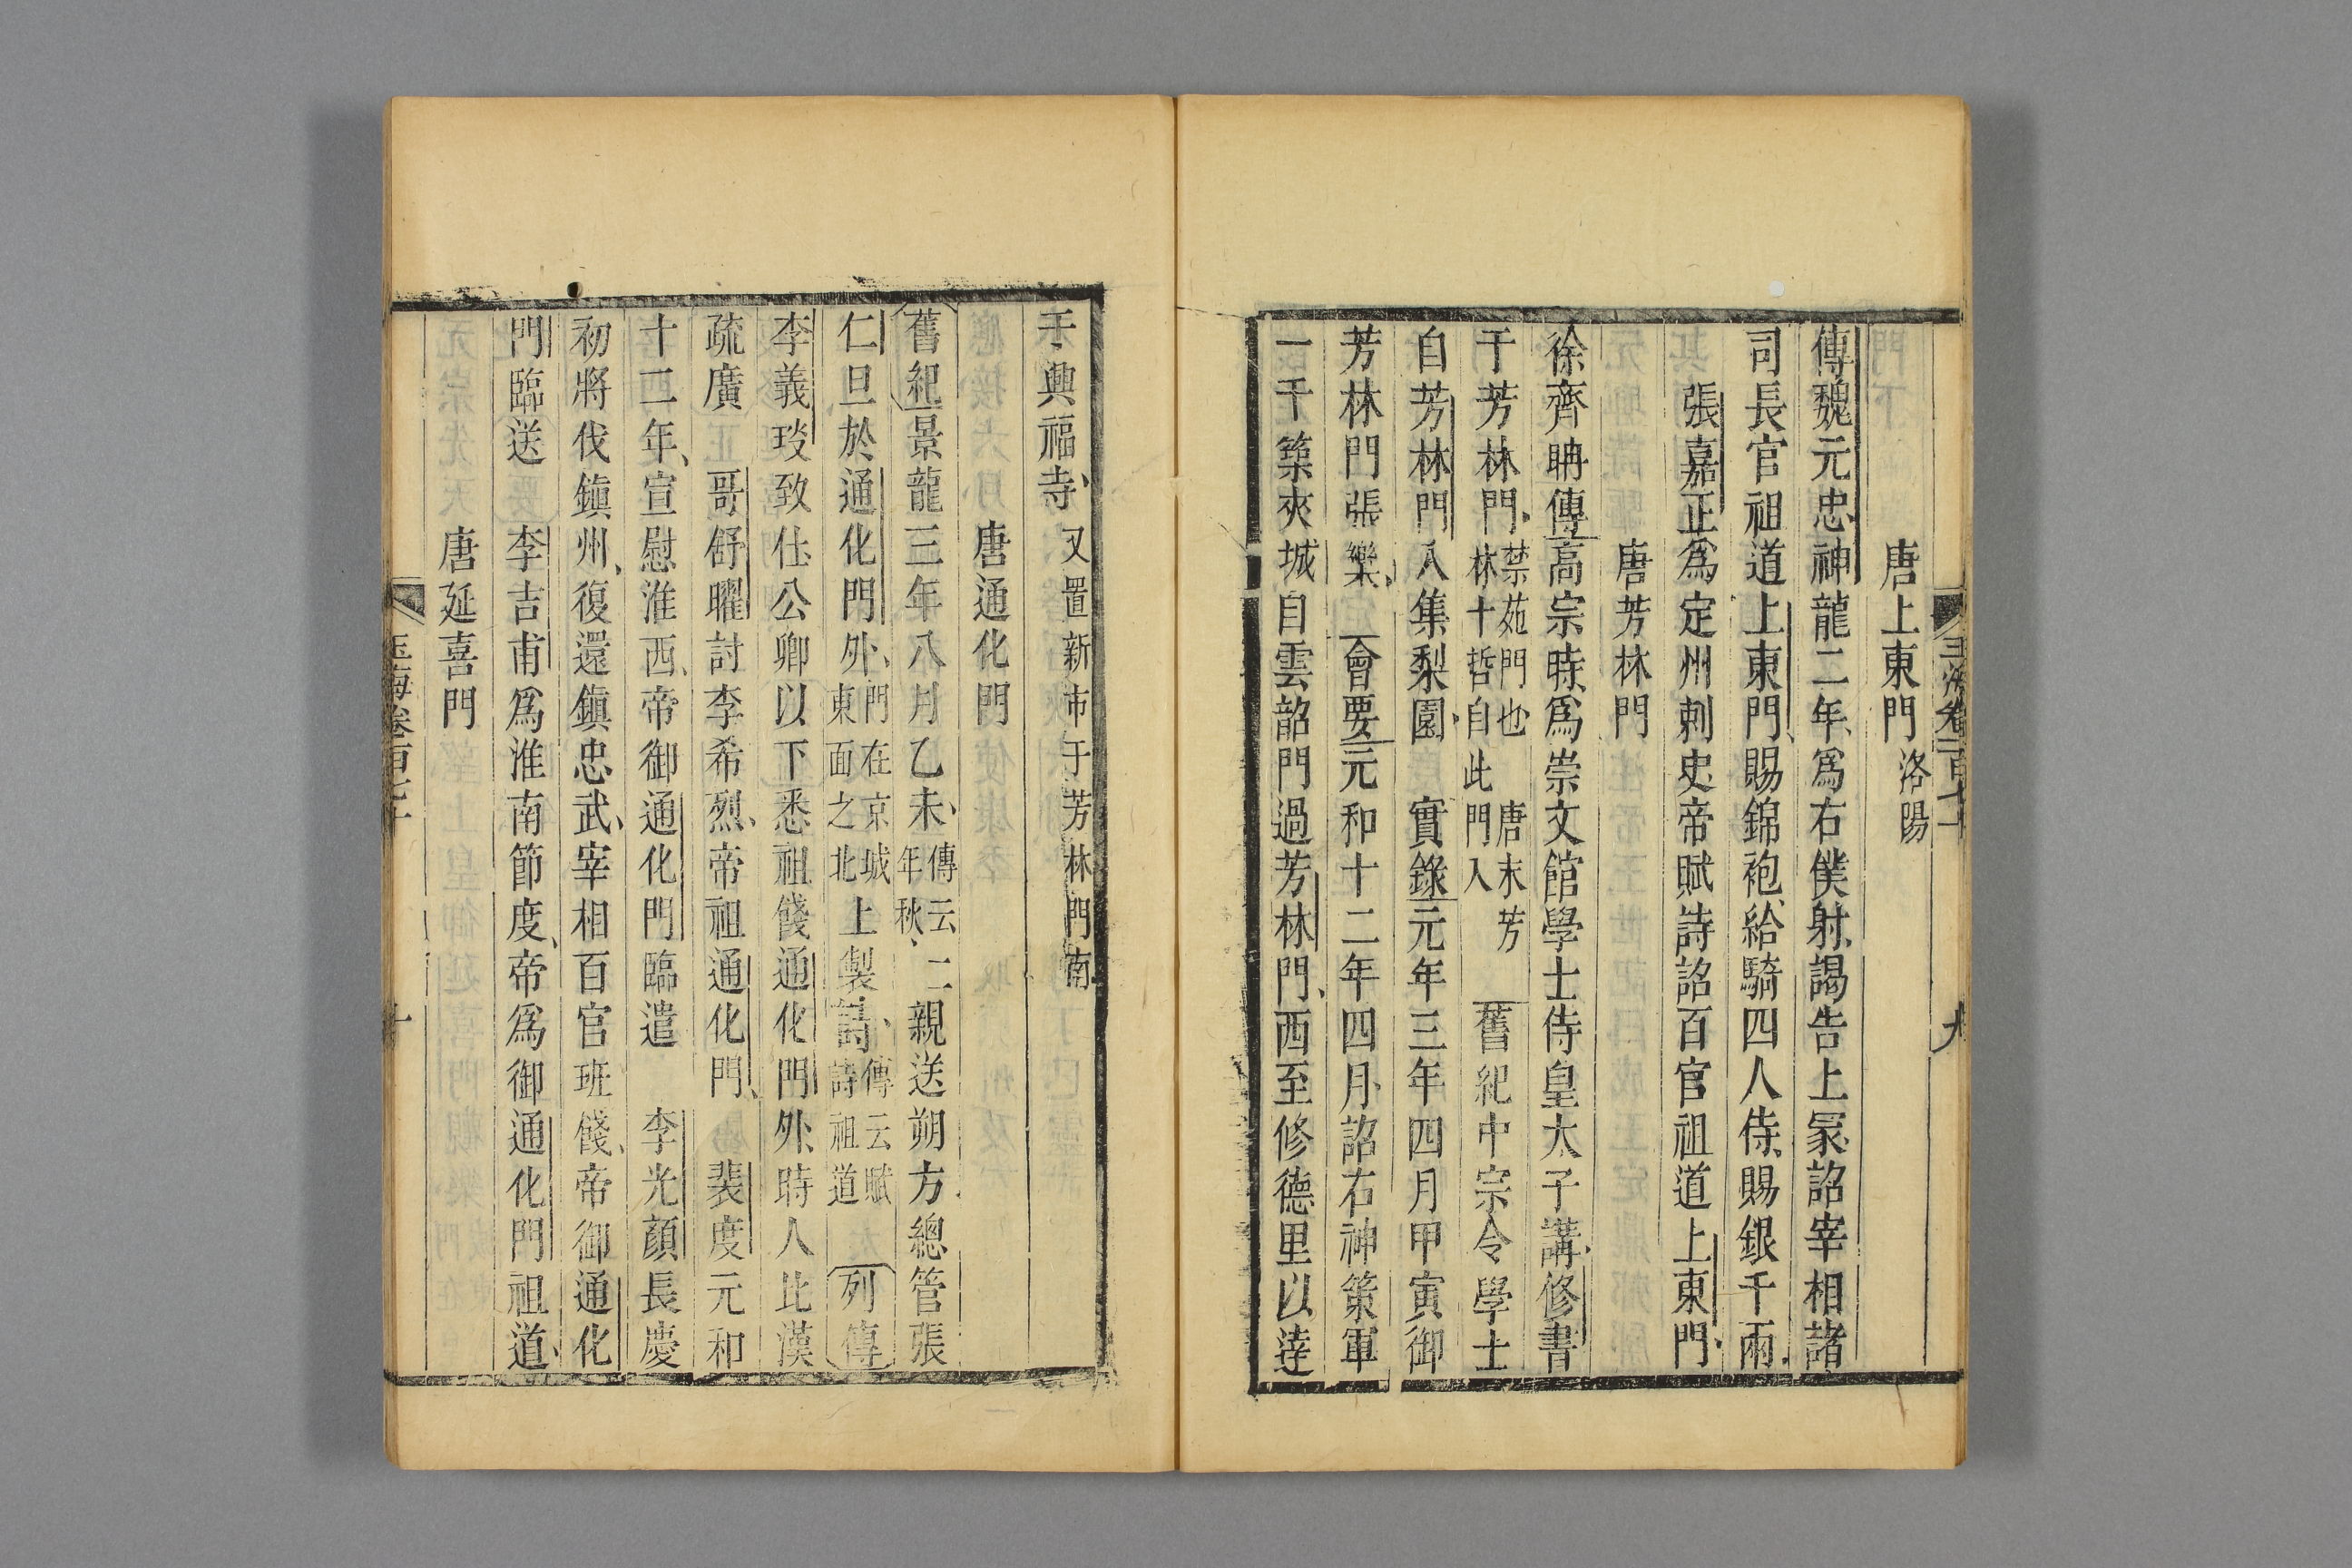 玉海卷一百七十
九
唐上東門洛陽
傳魏元忠神龍二年爲右僕射謁告上冢詔宰相諸
司長官祖道上東門賜錦袍給騎四人侍賜銀千兩
張嘉正爲定州刺史帝賦詩詔百官祖道上東門
唐芳林門
徐齊聃傳高宗時爲崇文館學士侍皇太子講修書
于芳林門禁苑門也唐末芳林十哲自此門入舊紀中宗令學士
自芳林門入集梨園實錄元年三年四月甲寅御
芳林門張樂會要元和十二年四月詔右神策軍
一千築夾城自雲韶門過芳林門西至修德里以達
于興福寺又置新市于芳林門南
唐通化門
舊紀景龍三年八月乙未傳云年秋二親送朔方總管張
仁亶於通化門外門在京城東面之北上製詩傳云賦詩祖道列傳
李義琰致仕公卿以下悉祖餞通化門外時人比漢
疏廣哥舒曜討李希烈帝祖通化門裴度元和
十二年宣慰淮西帝御通化門臨遣李光顏長慶
初將伐鎮州復還鎮忠武宰相百官班餞帝御通化
門臨送李吉甫爲淮南節度帝爲御通化門祖道
唐延喜門
玉海卷百七十
十